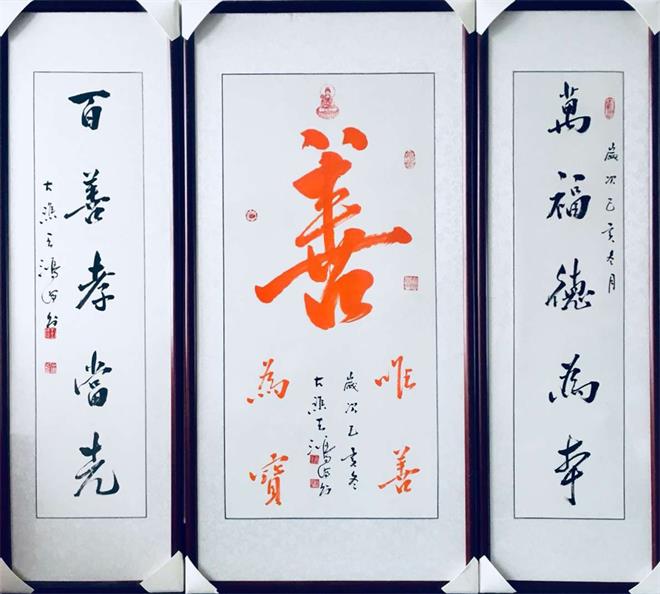 萬福德為本
歲次己亥冬月
善
唯善
為寶
歲次己亥冬
大漁王鴻
百善孝當先
大漁王鴻